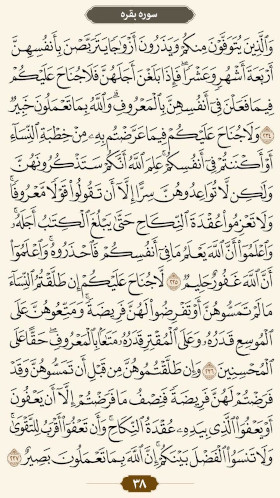 سوره بقره
وَٱلَّذِينَ يُتَوَفَّوْنَ مِنكُمْ وَيَذَرُونَ أَزْوَٰجًا يَتَرَبَّصْنَ بِأَنفُسِهِنَّ
أَرْبَعَةَ أَشْهُرٍ وَعَشْرًا ۖ فَإِذَا بَلَغْنَ أَجَلَهُنَّ فَلَا جُنَاحَ عَلَيْكُمْ
فِيمَا فَعَلْنَ فِىٓ أَنفُسِهِنَّ بِٱلْمَعْرُوفِ ۗ وَٱللَّهُ بِمَا تَعْمَلُونَ خَبِيرٌ
﴿٢٣٤﴾ وَلَا جُنَاحَ عَلَيْكُمْ فِيمَا عَرَّضْتُم بِهِۦ مِنْ خِطْبَةِ ٱلنِّسَآءِ
أَوْ أَكْنَنتُمْ فِىٓ أَنفُسِكُمْ ۚ عَلِمَ ٱللَّهُ أَنَّكُمْ سَتَذْكُرُونَهُنَّ
وَلَٰكِن لَّا تُوَاعِدُوهُنَّ سِرًّا إِلَّآ أَن تَقُولُوا۟ قَوْلًا مَّعْرُوفًا ۚ
وَلَا تَعْزِمُوا۟ عُقْدَةَ ٱلنِّكَاحِ حَتَّىٰ يَبْلُغَ ٱلْكِتَٰبُ أَجَلَهُۥ ۚ
وَٱعْلَمُوٓا۟ أَنَّ ٱللَّهَ يَعْلَمُ مَا فِىٓ أَنفُسِكُمْ فَٱحْذَرُوهُ ۚ وَٱعْلَمُوٓا۟
أَنَّ ٱللَّهَ غَفُورٌ حَلِيمٌ ﴿٢٣٥﴾ لَّا جُنَاحَ عَلَيْكُمْ إِن طَلَّقْتُمُ ٱلنِّسَآءَ
مَا لَمْ تَمَسُّوهُنَّ أَوْ تَفْرِضُوا۟ لَهُنَّ فَرِيضَةً ۚ وَمَتِّعُوهُنَّ عَلَى
ٱلْمُوسِعِ قَدَرُهُۥ وَعَلَى ٱلْمُقْتِرِ قَدَرُهُۥ مَتَٰعًۢا بِٱلْمَعْرُوفِ ۖ حَقًّا عَلَى
ٱلْمُحْسِنِينَ ﴿٢٣٦﴾ وَإِن طَلَّقْتُمُوهُنَّ مِن قَبْلِ أَن تَمَسُّوهُنَّ وَقَدْ
فَرَضْتُمْ لَهُنَّ فَرِيضَةً فَنِصْفُ مَا فَرَضْتُمْ إِلَّآ أَن يَعْفُونَ
أَوْ يَعْفُوَا۟ ٱلَّذِى بِيَدِهِۦ عُقْدَةُ ٱلنِّكَاحِ ۚ وَأَن تَعْفُوٓا۟ أَقْرَبُ لِلتَّقْوَىٰ ۚ
وَلَا تَنسَوُا۟ ٱلْفَضْلَ بَيْنَكُمْ ۚ إِنَّ ٱللَّهَ بِمَا تَعْمَلُونَ بَصِيرٌ ﴿٢٣٧﴾
٣٨